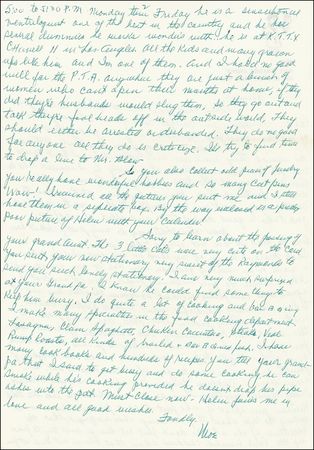 5:00 to 5:30 P.M Monday thru Friday he is a sensational
ventriloquist one of the best in the country and he has
several dummies he works wonders with. he is at K.T.T.V
Channel 11 in Los Angeles. All the kids and many grown
ups like him and I'm one of them. And I hold no good
will for the P.T.A. anywhere they are just a bunch of
women who can't open their mouths at home, if they
did they're husbands would slug them, so they go out and
talk they're fool heads off in the outside world. They
should either be arrested or disbanded. They do no good
for anyone all they do is criticize. I'll try to find time
to drop a line to Mr.
So you also collect all
you really have wonderful hobbies and so many cat pens
Wow! I received all the pictures you sent me, and I
have them in a separate box. By the way enclosed is a
poor picture of Helen with your Calendar.
Sorry to learn about the passing of
your grand Aunt. The 3 little cats were very cute on the card
you sent, your new stationery very nice of the to
send you such lovely stationery. I am very much surprised
at your Grandpa. I know he could find something to
keep him busy. I do quite a lot of cooking and Bar B Q ing
I make many specialties in the food cooking department
Lasagna, Clam Spaghetti, Chicken Cacciatore, Steaks, Veal
all kinds of and Bar B Que fish. I have
many cook books and hundreds of recipes. You tell your grand-
pa that I said to get busy and do some cooking he can
smoke while he's cooking provided he doesn't drop his pipe
ashes into the pot. Must close now. Helen joins me in
love and all good wishes.
Fondly
Moe